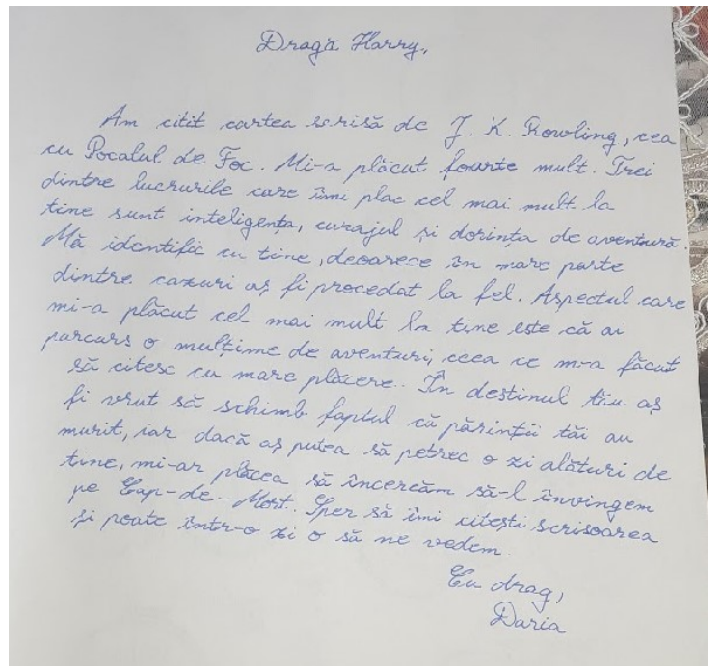 Dragă Harry,
Am citit cartea scrisă de J. K. Rowling, cea
cu Pocalul de Foc. Mi-a plăcut foarte mult. Trei
dintre lucrurile care îmi plac cel mai mult la
tine sunt inteligența, curajul și dorința de aventură.
Mă identific cu tine, deoarece în mare parte
dintre cazuri aș fi procedat la fel. Aspectul care
mi-a plăcut cel mai mult la tine este că au
parcurs o mulțime de aventuri, ceea ce m-a făcut
să citesc cu mare plăcere. În destinul tău aș
fi vrut să schimb faptul că părinții tăi au
murit, iar dacă aș putea să petrec o zi alături de
tine, mi-ar plăcea să încercăm să-l învingem
pe Cap-de-Mort. Sper să îmi citești scrisoarea
și poate într-o zi o să ne vedem.
Cu drag,
Daria